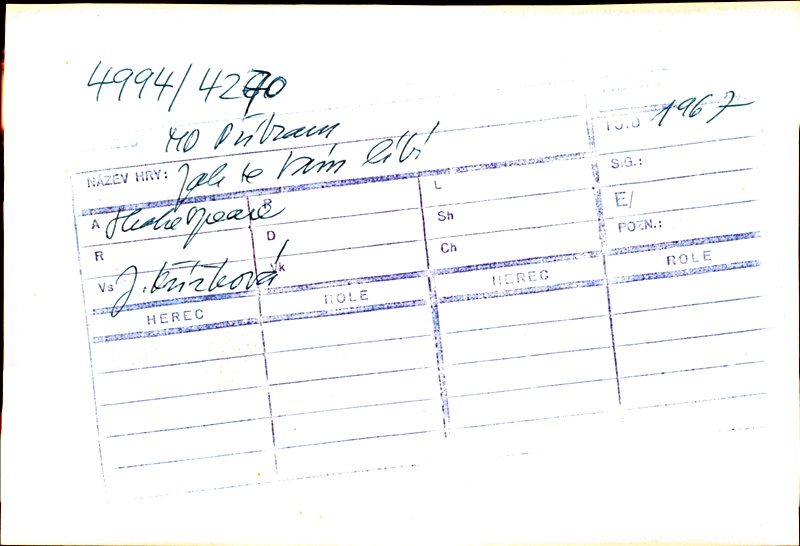 4994/4270
MD Příbram
FOTO 1967
NÁZEV HRY: Jak se Vám líbí
S.G.:
A Shakespeare B L
E/
R D Sh
POZN.:
Vs J. Křížková Vk Ch
HEREC ROLE HEREC ROLE